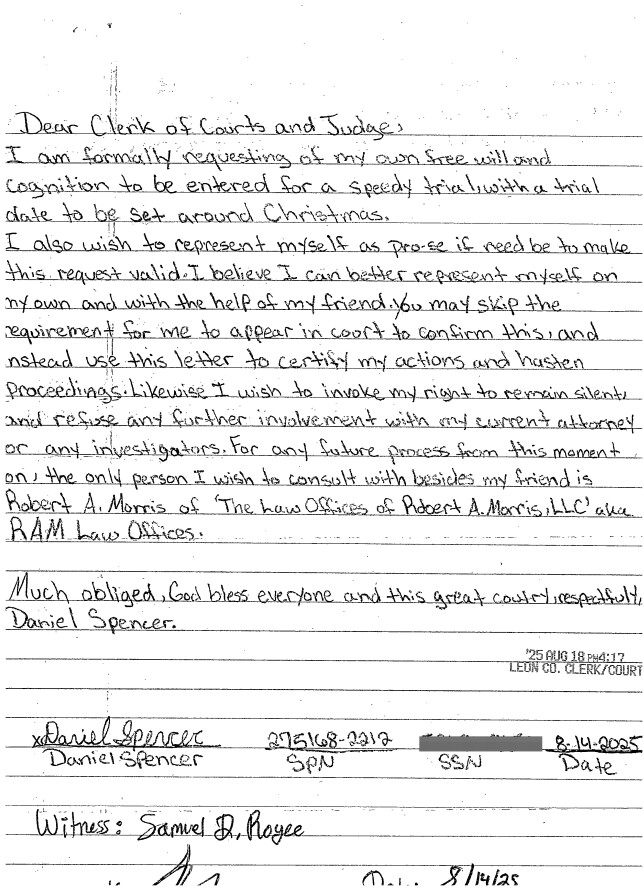 Dear Clerk of Courts and Judge,
I am formally requesting of my own free will and
cognition to be entered for a speedy trial, with a trial
date to be set around Christmas.
I also wish to represent myself as pro-se if need be to make
this request valid. I believe I can better represent myself on
my own and with the help of my friend. You may skip the
requirement for me to appear in court to confirm this, and
nstead use this letter to certify my actions and hasten
proceedings. Likewise I wish to invoke my right to remain silent,
and refuse any further involvement with my current attorney
or any investigators. For any future process from this moment
on, the only person I wish to consult with besides my friend is
Robert A. Morris of 'The Law Offices of Robert A. Morris, LLC' aka
RAM Law Offices.
Much obliged, God bless everyone and this great coutry, respectfully,
Daniel Spencer.
'25 AUG 18 PM4:17
LEON CO. CLERK/COURT
x Daniel Spencer 275168-2212 8-14-2025
Daniel Spencer SPN SSN Date
Witness: Samuel D. Rogee
8/14/25